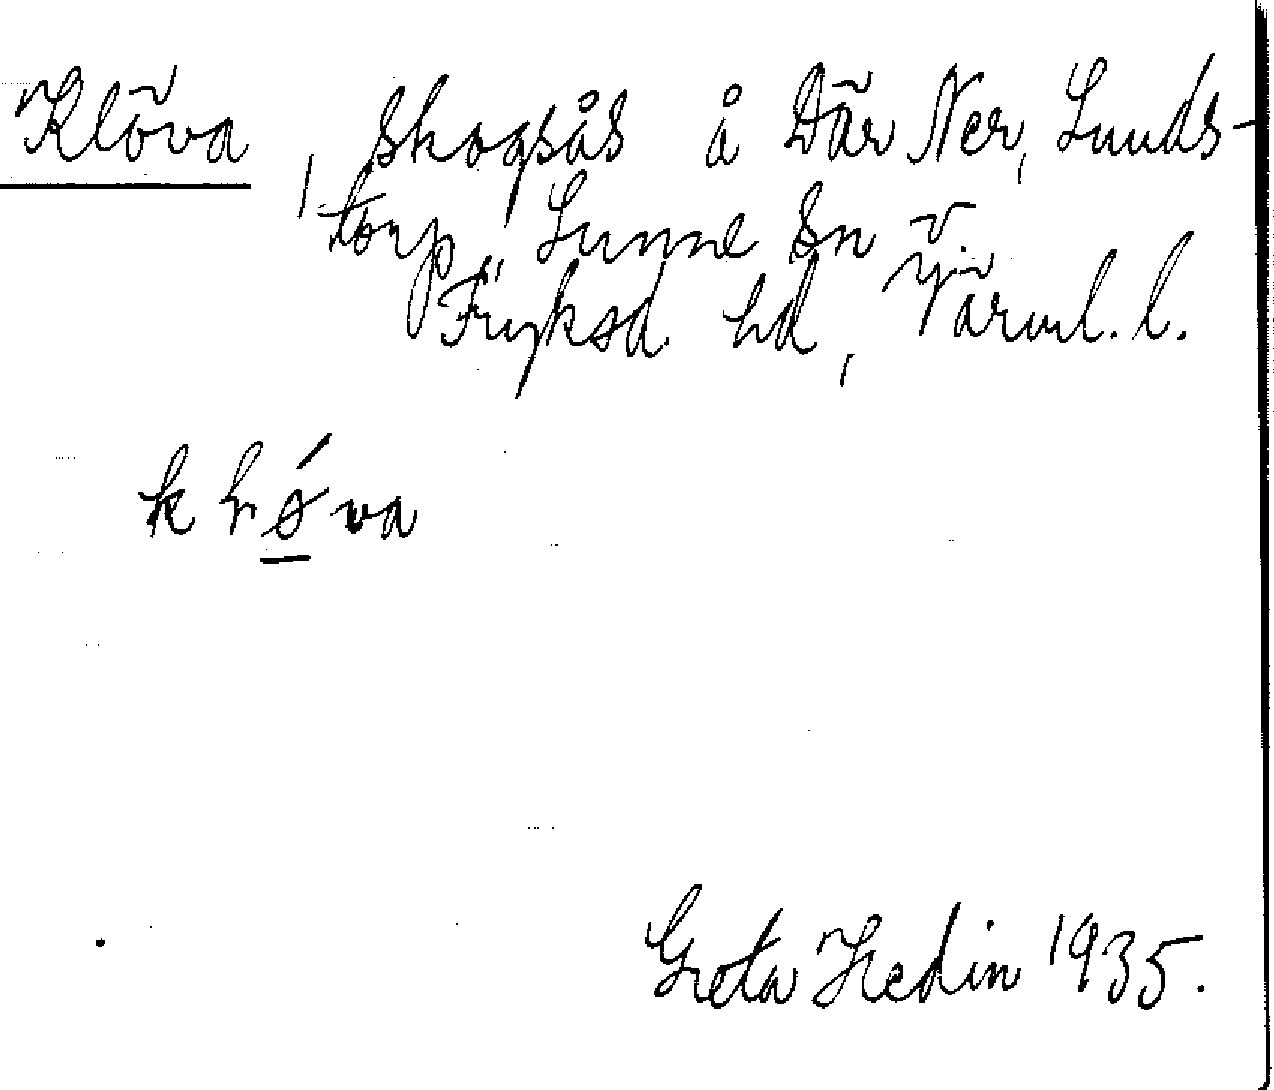 Klöva, skogsås å Där Ner, Lunds-
torp, Sunne Sn
Fryksd. hd, Värml. l.
Greta Hedin 1935.